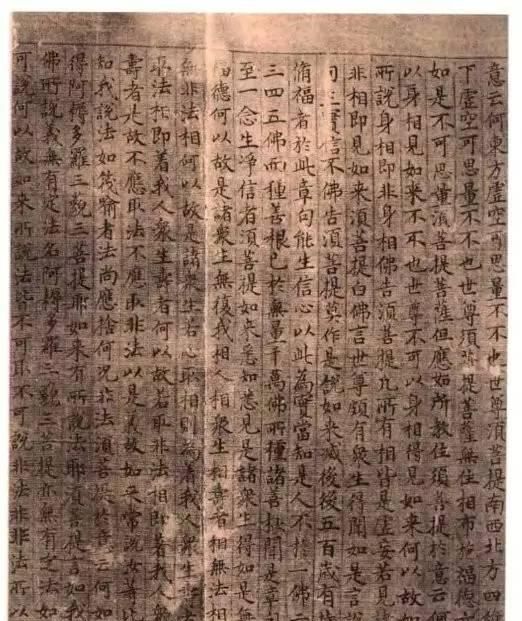 意云何東方虛空可思量不不也世尊須菩提南西北方四維
下虛空可思量不不也世尊須菩提菩薩無住相布施福德亦
如是不可思量須菩提菩薩但應如所教住須菩提於意云何
以身相見如來不不也世尊不可以身相得見如來何以故如
所說身相即非身相佛告須菩提凡所有相皆是虛妄若見諸
非相即見如來須菩提白佛言世尊頗有衆生得聞如是言說
句生實信不佛告須菩提莫作是說如來滅後後五百歲有持
脩福者於此章句能生信心以此為實當知是人不於一佛二
三四五佛而種善根已於無量千萬佛所種諸善根聞是章句
至一念生淨信者須菩提如來悉知悉見是諸衆生得如是無
福德何以故是諸衆生無復我相人相衆生相壽者相無法相
無非法相何以故是諸衆生若心取相則為著我人衆生壽者
取法相即著我人衆生壽者何以故若取非法相即著我人衆
壽者是故不應取法不應取非法以是義故如來常說女等比
知我說法如筏喻者法尚應捨何況非法須菩提於意云何如
得阿耨多羅三藐三菩提耶如來有所說法耶須菩提言如我
佛所說義無有定法名阿耨多羅三藐三菩提亦無有定法如
可說何以故如來所說法皆不可取不可說非法非非法所以